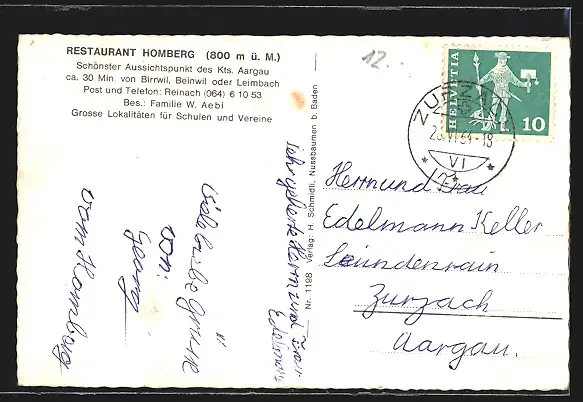 RESTAURANT HOMBERG (800 m ü. M.)
Schönster Aussichtspunkt des Kts. Aargau
ca. 30 Min. von Birrwil, Beinwil oder Leimbach
Post und Telefon: Reinach (064) 6 10 53
Bes.: Familie W. Aebi
Grosse Lokalitäten für Schulen und Vereine
12.
HELVETIA
10
VI
Nr. 1198 Verlag: H. Schmidli, Nussbaumen b. Baden
sehr geehrte Herrn und Frau
Edelmann
viele liebe Grüsse
von:
Georg
vom Homberg
Herrn und Frau
Edelmann Keller
Zurzach
Aargau.